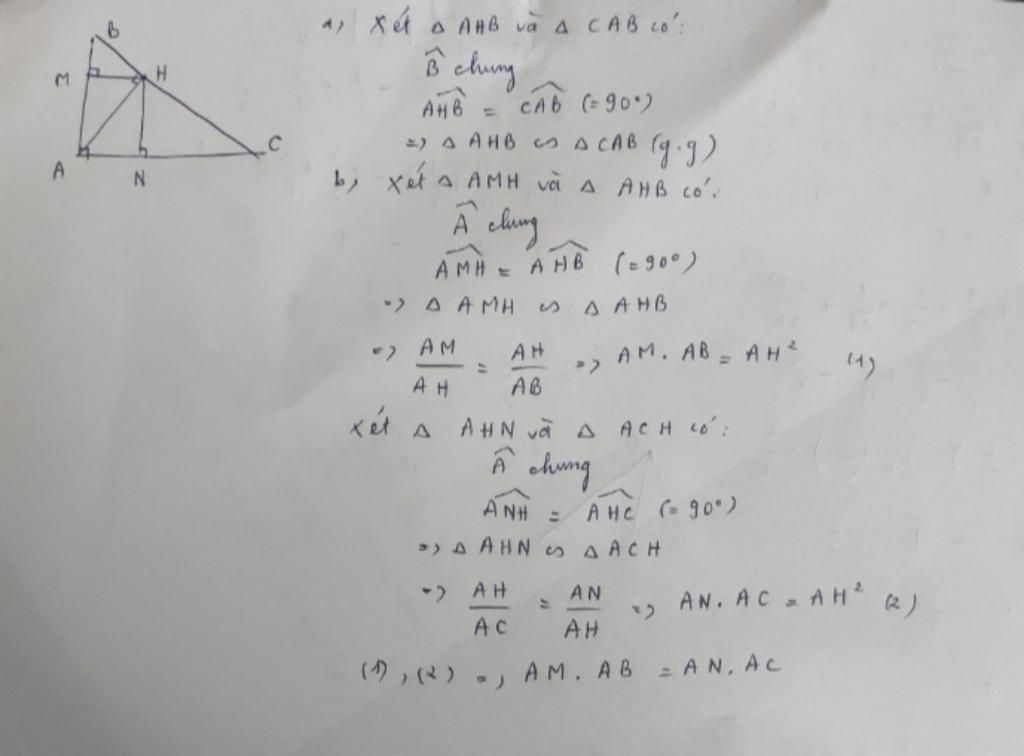 B
M
H
A
N
C
a, Xét Δ AHB và Δ CAB có:
B̂ chung
AHB = CAB (= 90°)
=> Δ AHB ∽ Δ CAB (g.g)
b, Xét Δ AMH và Δ AHB có:
Â chung
AMH = AHB (= 90°)
=> Δ AMH ∽ Δ AHB
=> AM/AH = AH/AB => AM. AB = AH² (1)
Xét Δ AHN và Δ ACH có:
Â chung
ANH = AHC (= 90°)
=> Δ AHN ∽ Δ ACH
=> AH/AC = AN/AH => AN. AC = AH² (2)
(1), (2) =, AM. AB = AN. AC